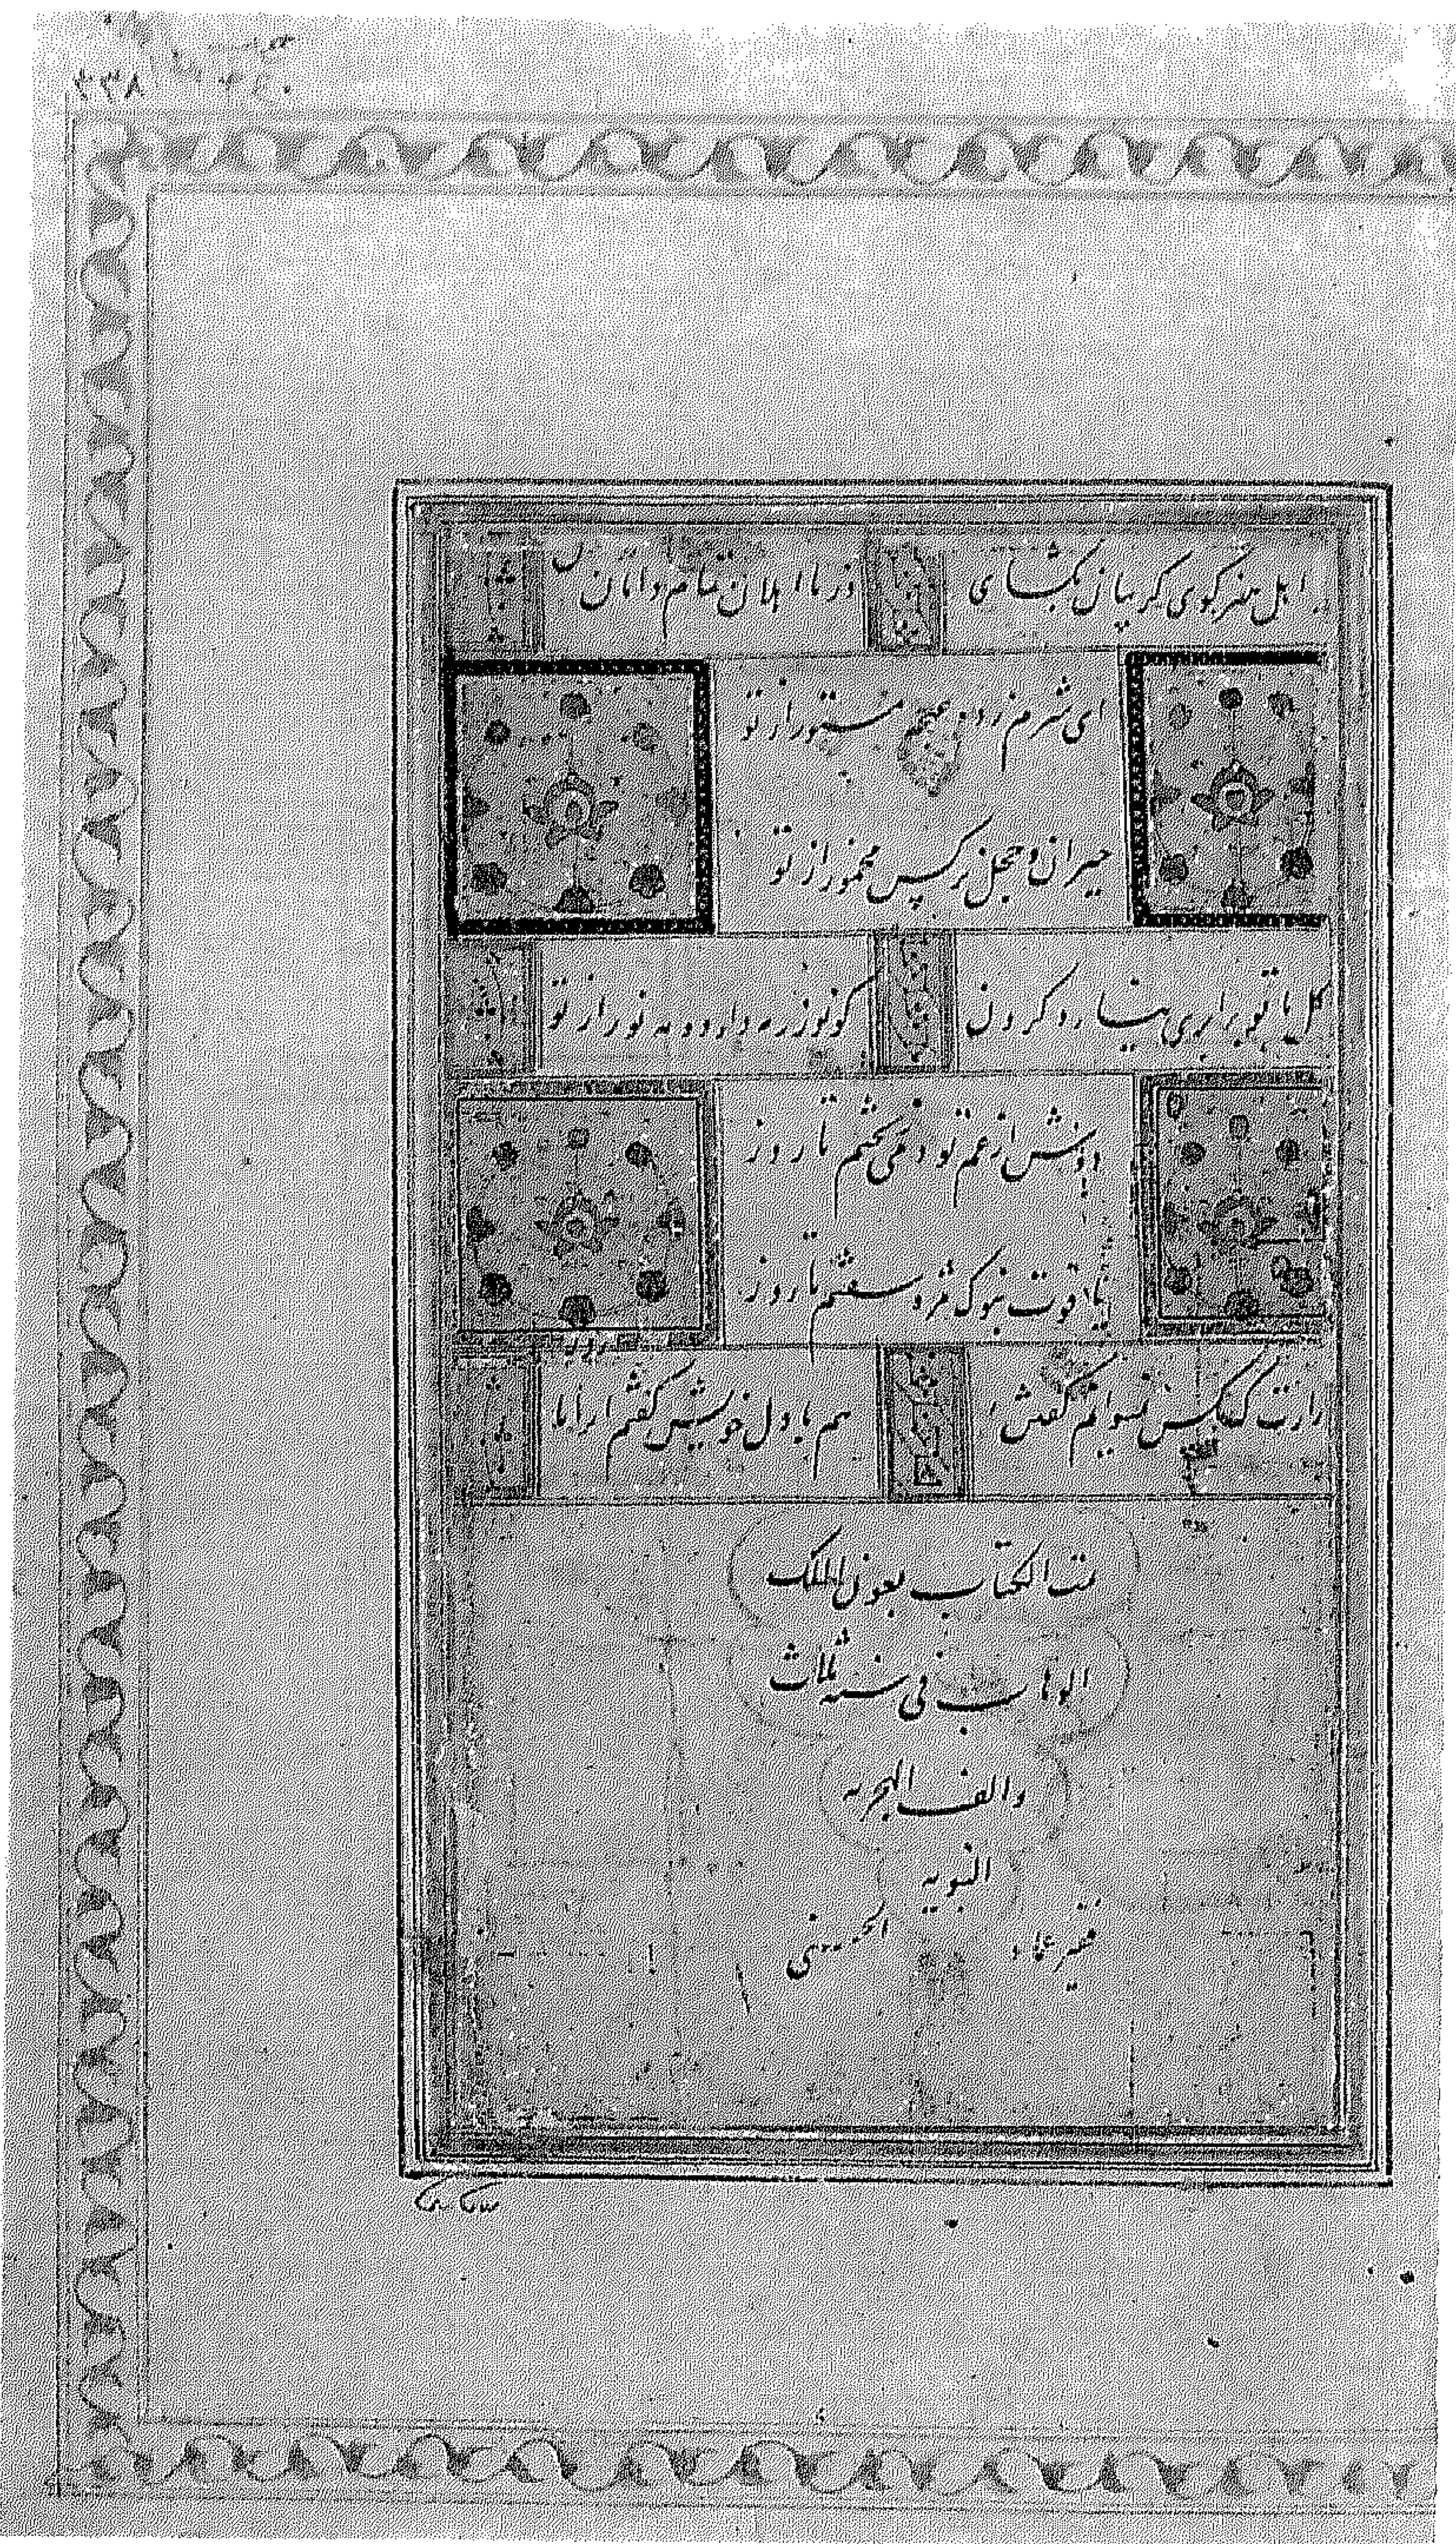 ز اهل هنر کوی کریبان بکشای
وز نا اهلان تمام دامان
ای شرم زده غنچه مستور از تو
حیران و خجل نرکس مخمور از تو
کل با تو برابری نیارد کردن
کو نور ز مه دارد و مه نور از تو
دوش از غم تو دمی نخفتم تا روز
یاقوت بنوک مژه سفتم تا روز
رازت که بکس نمیتوانم گفتن
هم با دل خویش گفتم تا روز
تمت الکتاب بعون الملک
الوهاب فی سنه ثلاث
والف الهجریه
النبویه
فقیر عماد الحسنی